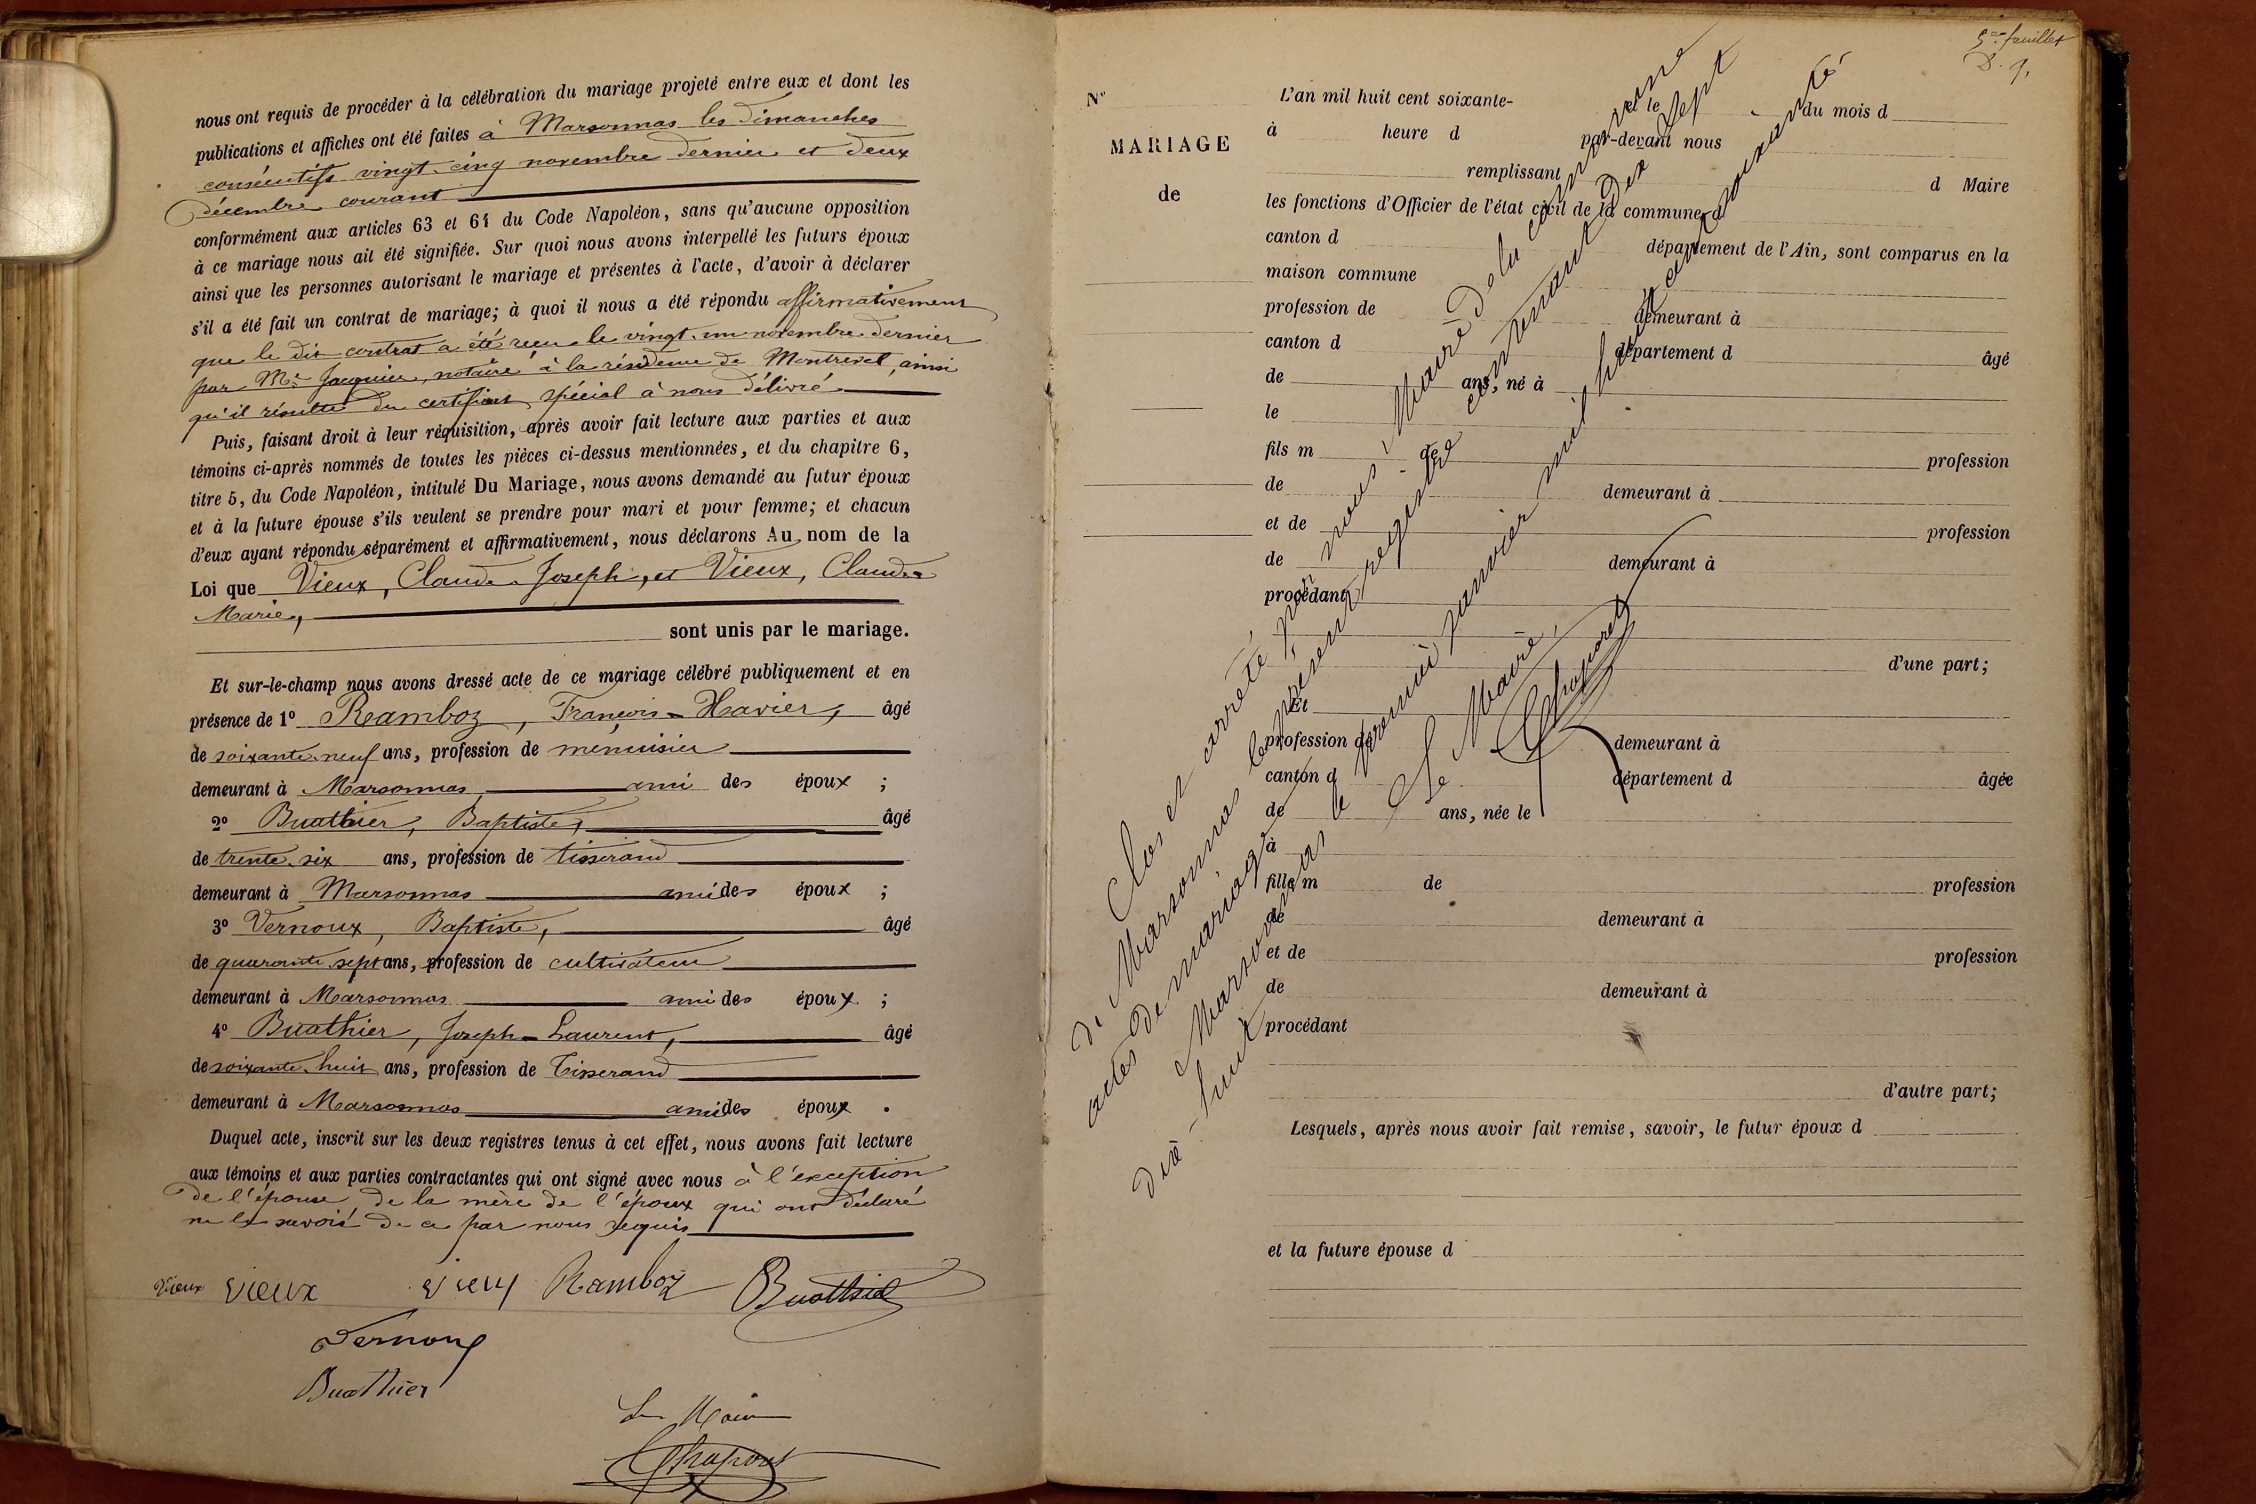 nous ont requis de procéder à la célébration du mariage projeté entre eux et dont les
publications et affiches ont été faites à Marsonnas les Dimanches
consécutifs vingt-cinq novembre dernier et deux
décembre courant
conformément aux articles 63 et 64 du Code Napoléon, sans qu'aucune opposition
à ce mariage nous ait été signifiée. Sur quoi nous avons interpellé les futurs époux
ainsi que les personnes autorisant le mariage et présentes à l'acte, d'avoir à déclarer
s'il a été fait un contrat de mariage; à quoi il nous a été répondu affirmativement
que le dit contrat a été reçu le vingt-un novembre dernier
par Me Jacquier, notaire à la résidence de Montrevel, ainsi
qu'il résulte du certificat spécial à nous délivré
Puis, faisant droit à leur réquisition, après avoir fait lecture aux parties et aux
témoins ci-après nommés de toutes les pièces ci-dessus mentionnées, et du chapitre 6,
titre 5, du Code Napoléon, intitulé Du Mariage, nous avons demandé au futur époux
et à la future épouse s'ils veulent se prendre pour mari et pour femme; et chacun
d'eux ayant répondu séparément et affirmativement, nous déclarons Au nom de la
Loi que Vieux, Claude-Joseph, et Vieux, Claudine
Marie,
sont unis par le mariage.
Et sur-le-champ nous avons dressé acte de ce mariage célébré publiquement et en
présence de 1º Ramboz, François-Xavier, âgé
de soixante-neuf ans, profession de menuisier
demeurant à Marsonnas, ami des époux ;
2º Buathier, Baptiste, âgé
de trente-six ans, profession de tisserand
demeurant à Marsonnas ami des époux ;
3º Vernoux, Baptiste, âgé
de quarante-sept ans, profession de cultivateur
demeurant à Marsonnas ami des époux ;
4º Buathier, Joseph-Laurent, âgé
de soixante-huit ans, profession de Tisserand
demeurant à Marsonnas ami des époux .
Duquel acte, inscrit sur les deux registres tenus à cet effet, nous avons fait lecture
aux témoins et aux parties contractantes qui ont signé avec nous à l'exception
de l'épouse de la mère de l'époux qui ont déclaré
ne le savoir de ce par nous requis
Vieux Vieux Vieux Ramboz Buathier
Vernoux
Buathier
Le Maire
Chaponet
5me feuillet
Nº
MARIAGE
de
L'an mil huit cent soixante- le du mois d
à heure d par-devant nous
remplissant d Maire
les fonctions d'Officier de l'état civil de la commune d
canton d département de l'Ain, sont comparus en la
maison commune
profession de demeurant à
canton d département d âgé
de ans, né à
le
fils m de profession
de demeurant à
et de profession
de demeurant à
procédant
d'une part;
Et
profession de demeurant à
canton d département d âgée
de ans, née le
à
fille m de profession
de demeurant à
et de profession
de demeurant à
procédant
d'autre part;
Lesquels, après nous avoir fait remise, savoir, le futur époux d
et la future épouse d
Clos et arrêté par nous, Maire de la commune
de Marsonnas le présent registre contenant dix sept
actes de mariage
Marsonnas le premier janvier mil huit cent soixante
dix-huit
Le Maire,
Chaponet